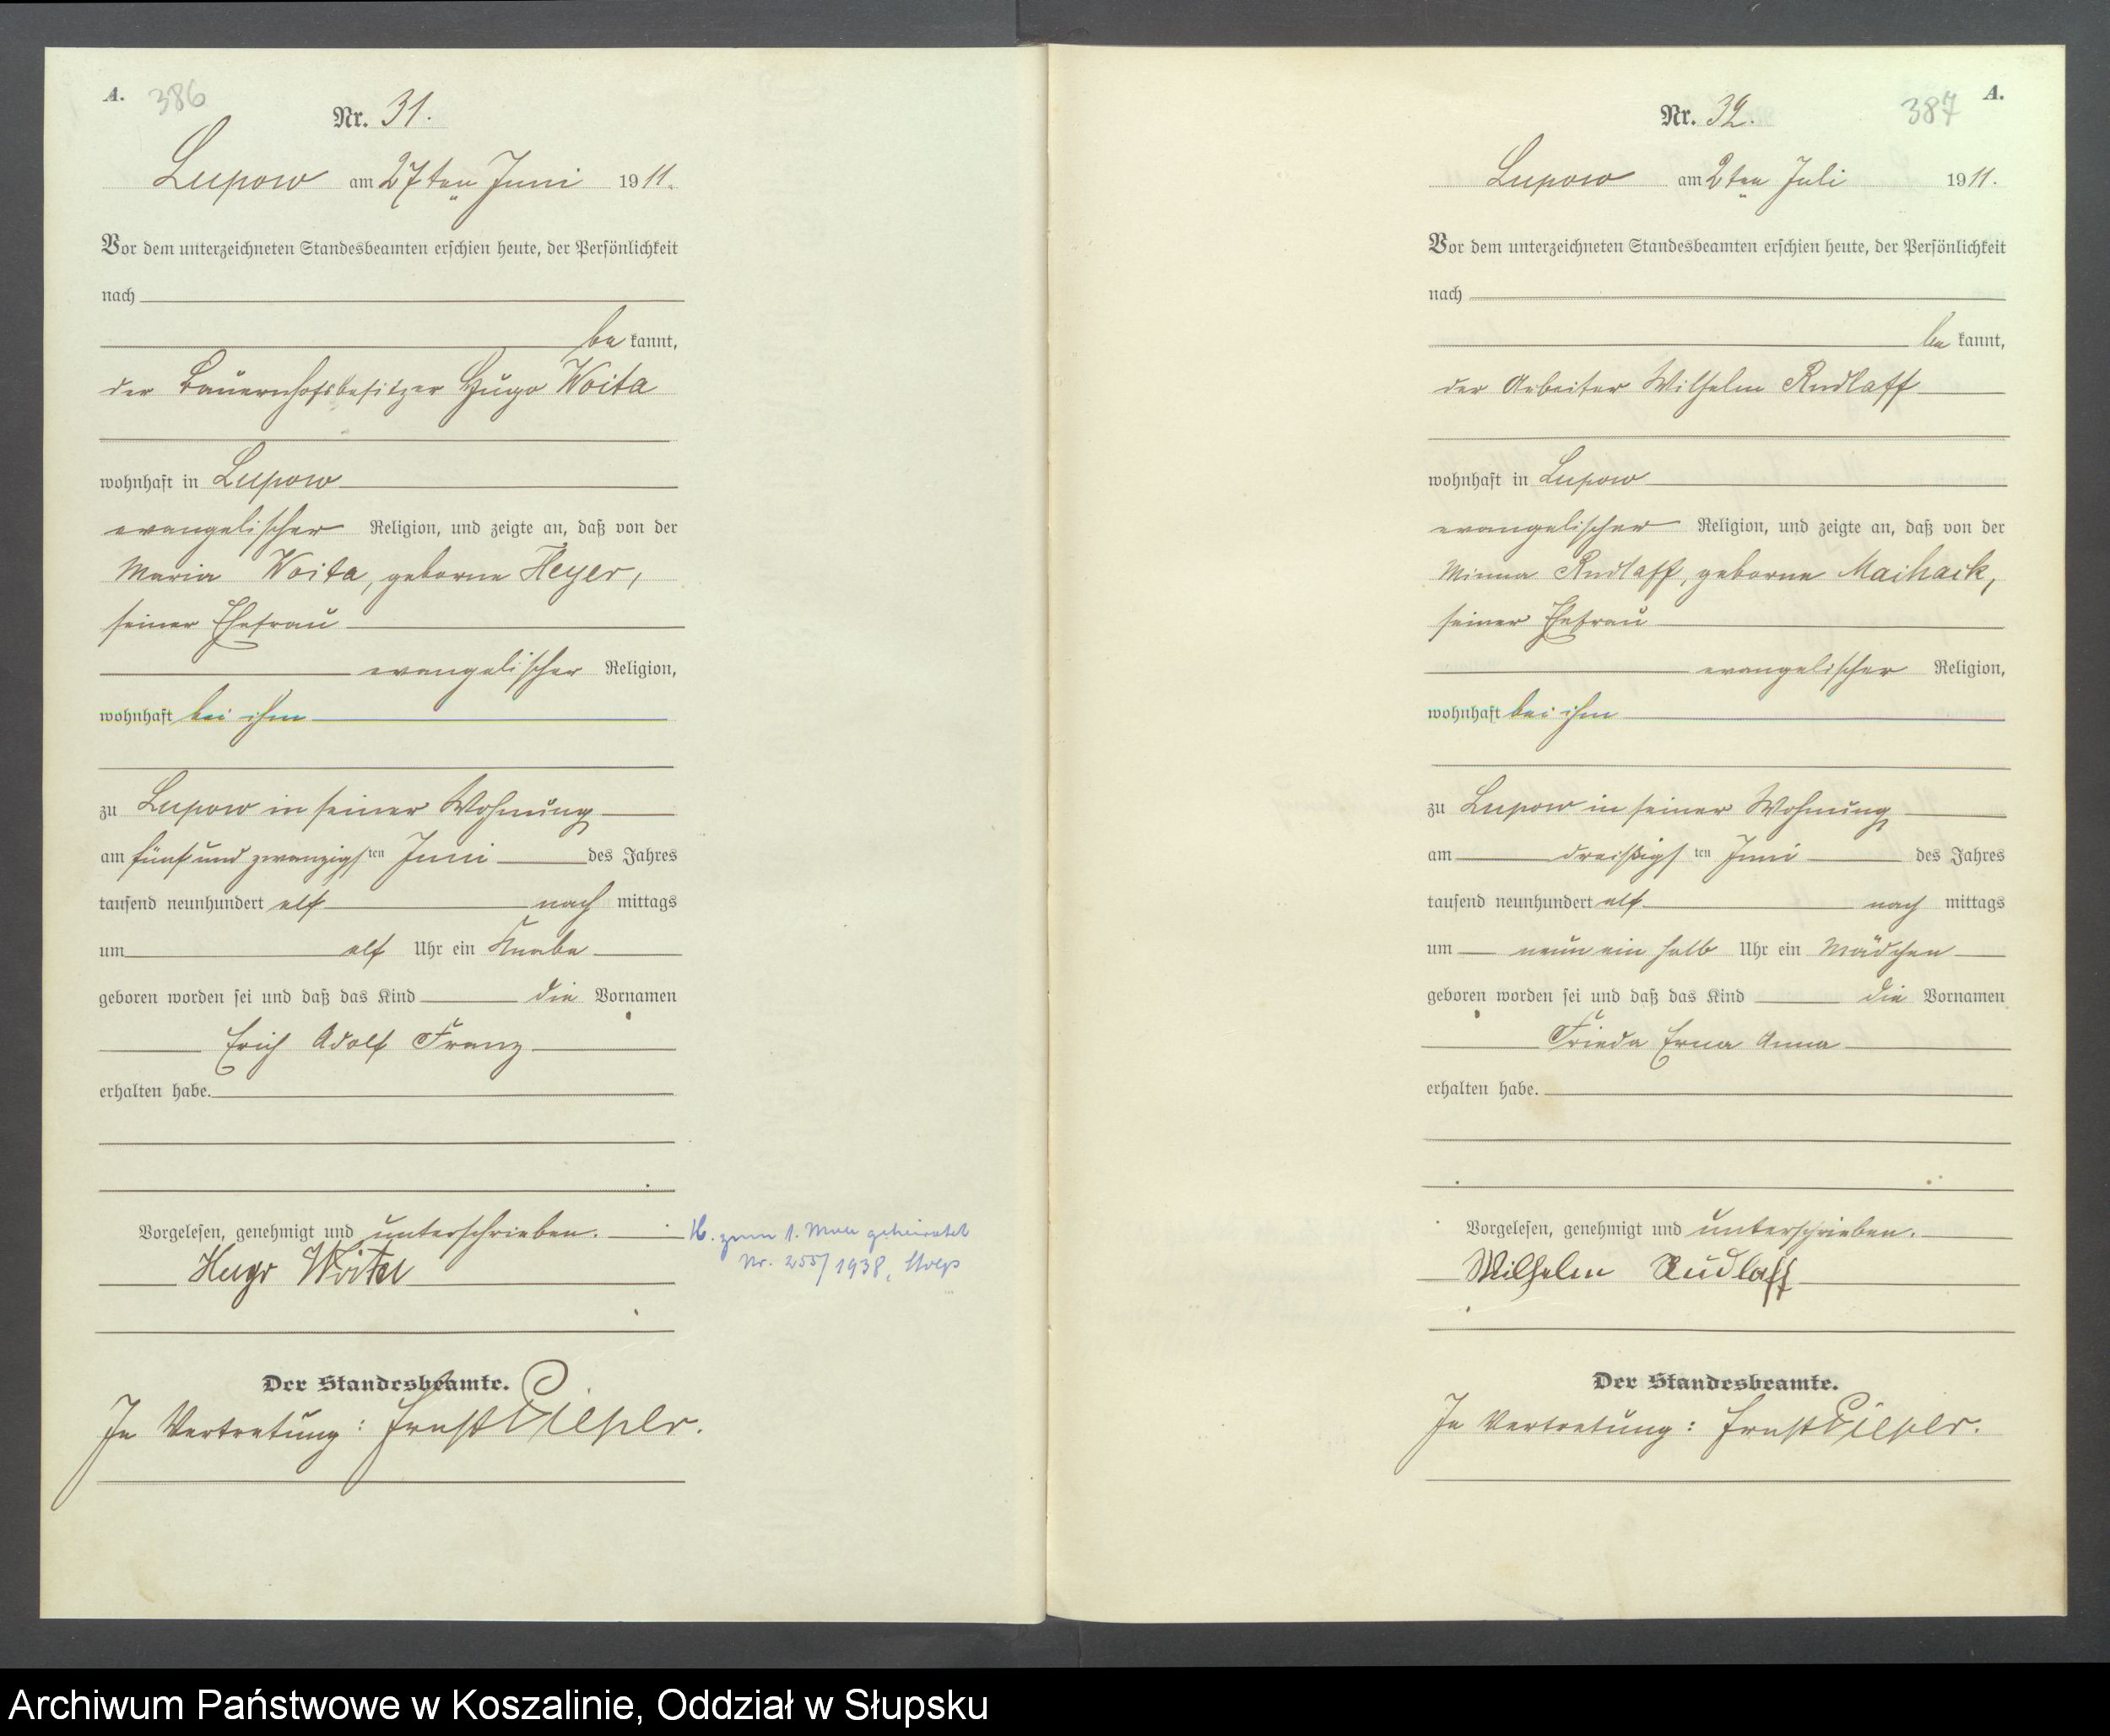 A. 386
Nr. 31.
Lupow am 27ten Juni 1911.
Vor dem unterzeichneten Standesbeamten erschien heute, der Persönlichkeit
nach
bekannt,
der Bauernhofsbesitzer Hugo Woita
wohnhaft in Lupow
evangelischer Religion, und zeigte an, daß von der
Maria Woita, geborne Heyer,
seiner Ehefrau
evangelischer Religion,
wohnhaft bei ihm
zu Lupow in seiner Wohnung
am fünf und zwanzigsten Juni des Jahres
tausend neunhundert elf nach mittags
um elf Uhr ein Knabe
geboren worden sei und daß das Kind die Vornamen
Erich Adolf Franz
erhalten habe.
Vorgelesen, genehmigt und unterschrieben.
Hugo Woita
H. zum 1. Male geheiratet
Nr. 255/1938, Stolp
Der Standesbeamte.
In Vertretung: Ernst Pieper.
387 A.
Nr. 32.
Lupow am 2ten Juli 1911.
Vor dem unterzeichneten Standesbeamten erschien heute, der Persönlichkeit
nach
bekannt,
der Arbeiter Wilhelm Rudlaff
wohnhaft in Lupow
evangelischer Religion, und zeigte an, daß von der
Minna Rudlaff, geborne Maihack,
seiner Ehefrau
evangelischer Religion,
wohnhaft bei ihm
zu Lupow in seiner Wohnung
am dreißigsten Juni des Jahres
tausend neunhundert elf nach mittags
um neun ein halb Uhr ein Mädchen
geboren worden sei und daß das Kind die Vornamen
Frieda Erna Anna
erhalten habe.
Vorgelesen, genehmigt und unterschrieben.
Wilhelm Rudlaff
Der Standesbeamte.
In Vertretung: Ernst Pieper.
Archiwum Państwowe w Koszalinie, Oddział w Słupsku